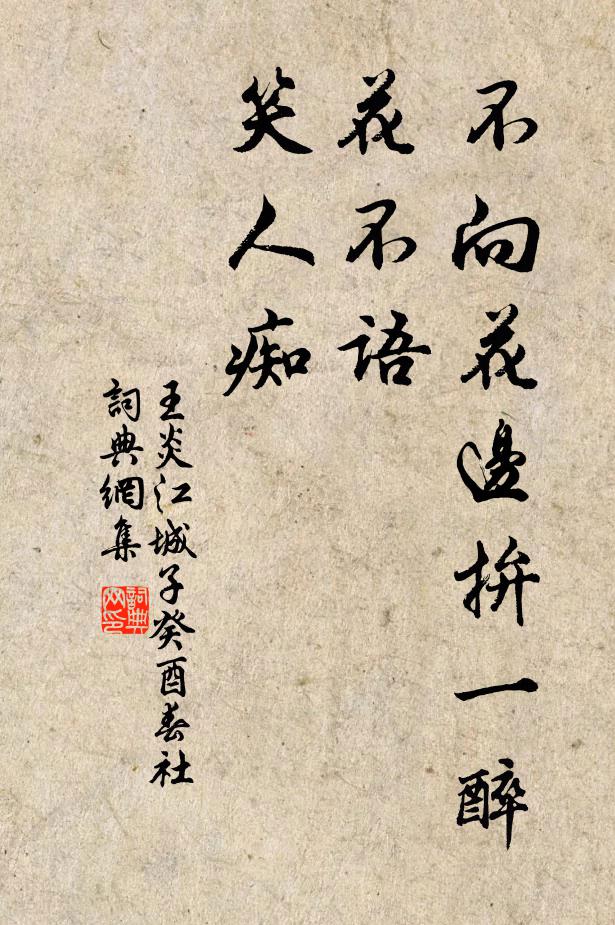 不向花邊拚一醉
花不語
笑人痴
王炎江城子癸酉春社
詞典網集
詞典
网印